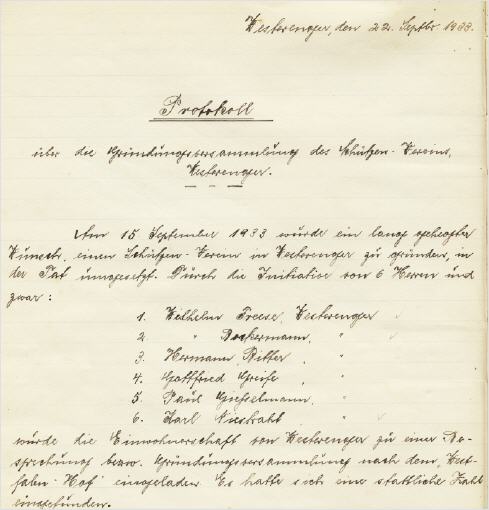 Westerenger, den 22. Septbr. 1933.
Protokoll
über die Gründungsversammlung des Schützen-Vereins,
Westerenger.
Am 15 September 1933 wurde ein lang gehegter
Wunsch, einen Schützen-Verein in Westerenger zu gründen, in
der Tat umgesetzt. Durch die Initiative von 6 Herren und
zwar:
1. Wilhelm Freese, Westerenger
2. " Beckermann, "
3. Hermann Ritter, "
4. Gottfried Greife, "
5. Paul Gieselmann, "
6. Karl Niestrath "
wurde die Einwohnerschaft von Westerenger zu einer Be-
sprechung bezw. Gründungsversammlung nach dem „West-
falen-Hof" eingeladen. Es hatte sich eine stattliche Zahl
eingefunden.